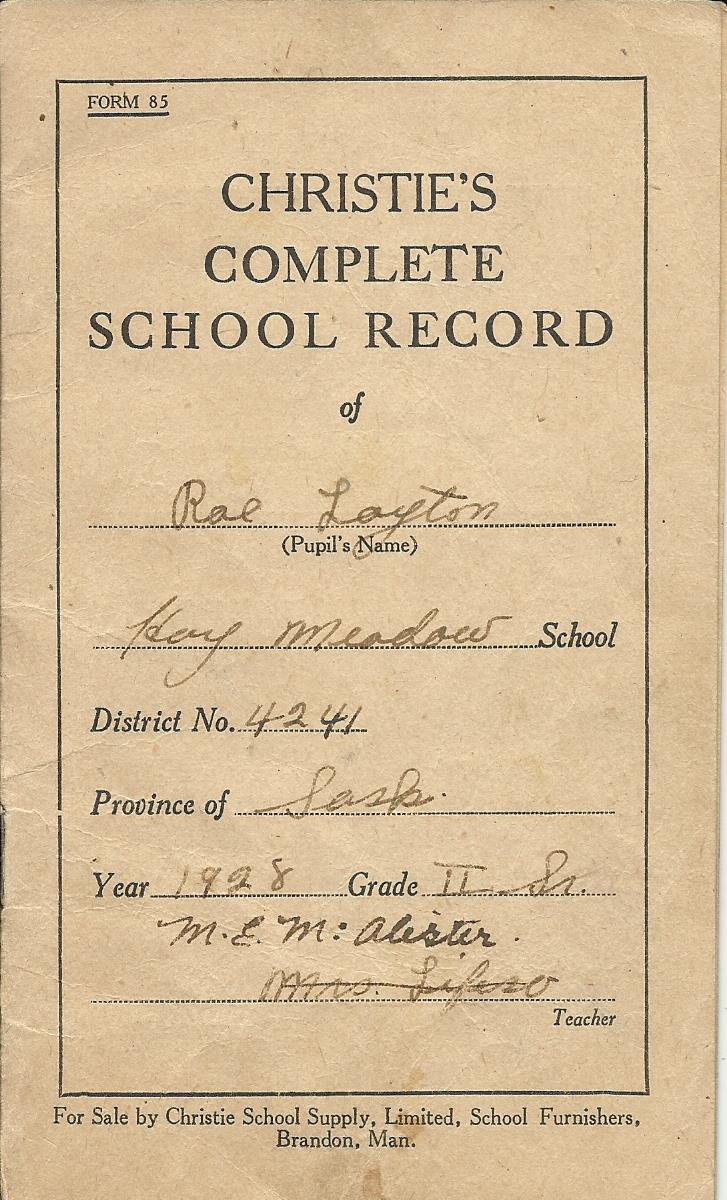 FORM 85
CHRISTIE'S
COMPLETE
SCHOOL RECORD
of
Rae Layton
(Pupil's Name)
Hay Meadow School
District No. 4241
Province of Sask.
Year 1928 Grade II Sr.
M. E. Mc Alister.
Mrs.
Teacher
For Sale by Christie School Supply, Limited, School Furnishers,
Brandon, Man.